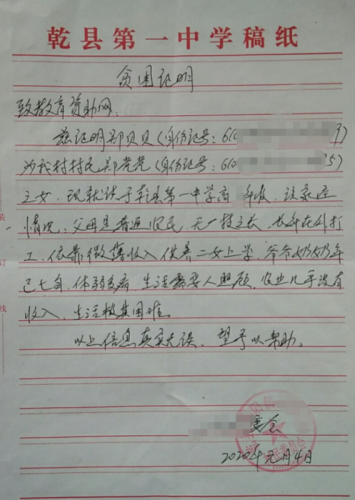 乾县第一中学稿纸
贫困证明
致教育资助网:
兹证明郭贝贝(身份证号:610 9)
沙 村村民郭 (身份证号:610 5)
之女,现就读于乾县第一中学高 年级,该家庭
情况:父母是普通农民,无一技之长,长年在外打
工,依靠微薄收入供养二女上学,爷爷奶奶年
已七旬,体弱多病,生活需要人照顾,农业几乎没有
收入,生活极其困难。
以上信息真实无误,望予以帮助。
委会
2020年元月4日